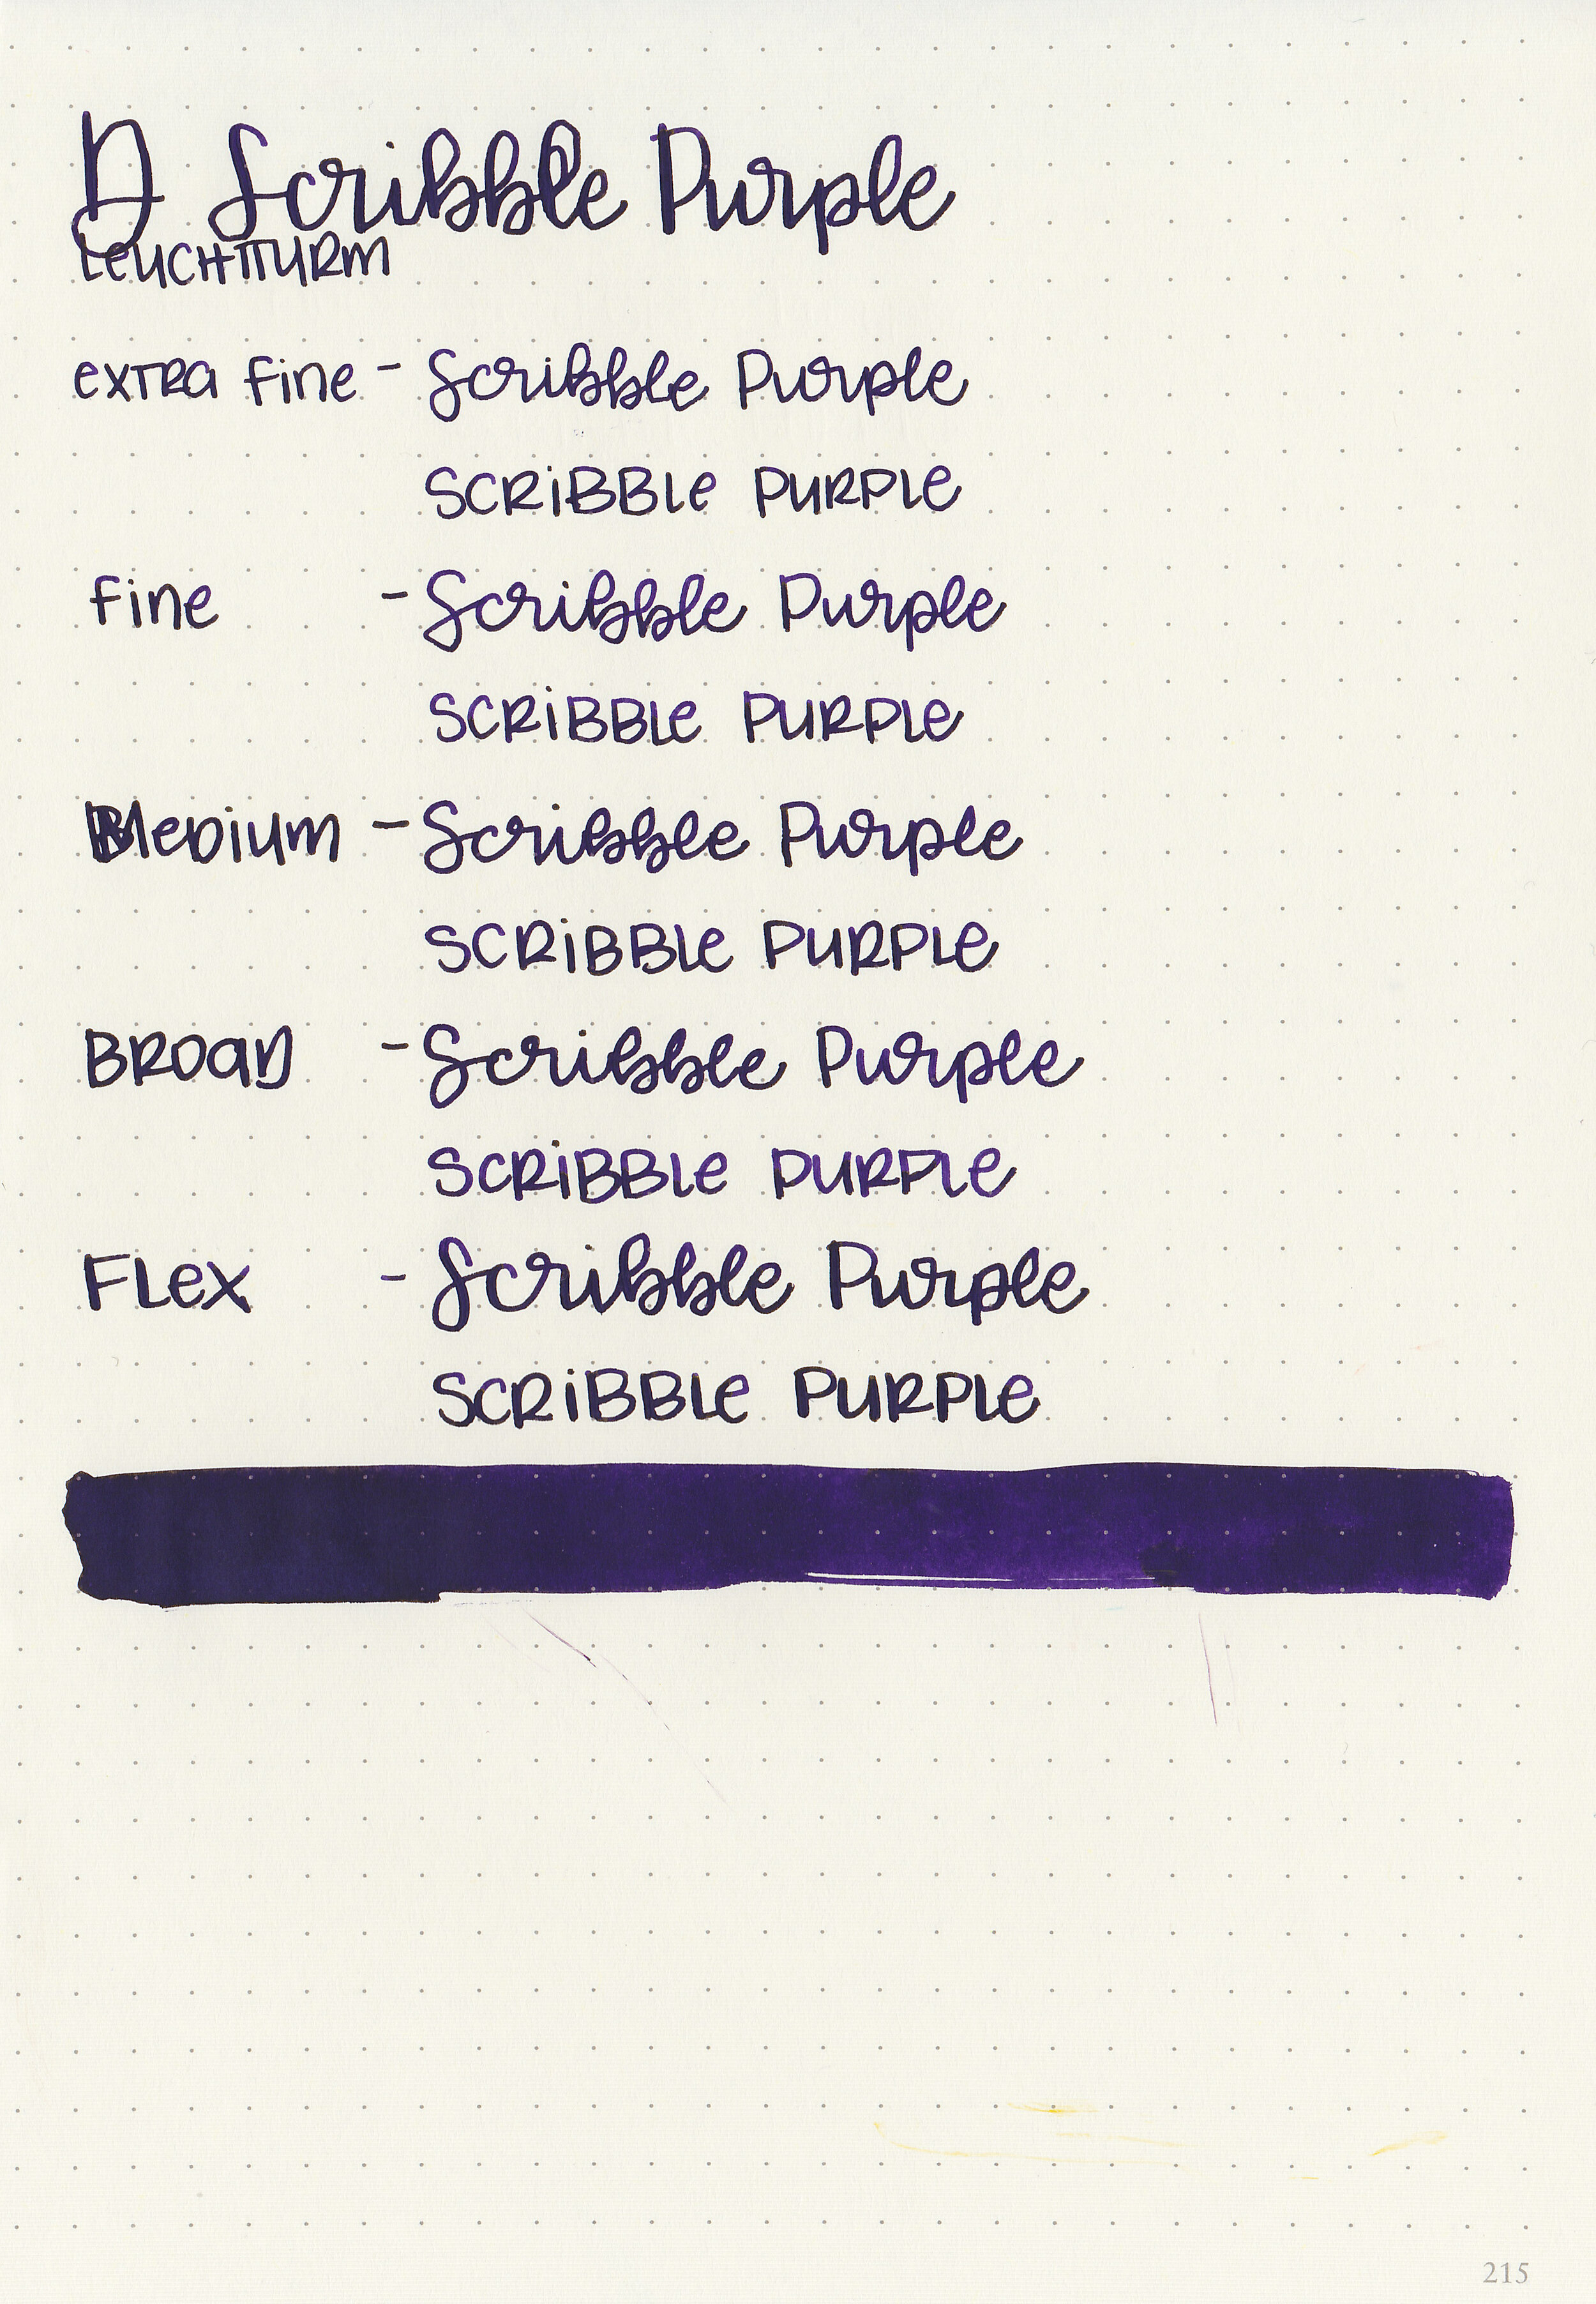 D Scribble Purple
LeUCHTTURM
exTRa Fine - Scribble Purple
SCRiBBLe PURPLe
Fine - Scribble Purple
SCRiBBLe PURPLe
MeDiUm - Scribble Purple
SCRiBBLe PURPLe
BROaD - Scribble Purple
SCRiBBLe PURPLe
FLex - Scribble Purple
SCRiBBLe PURPLe
215